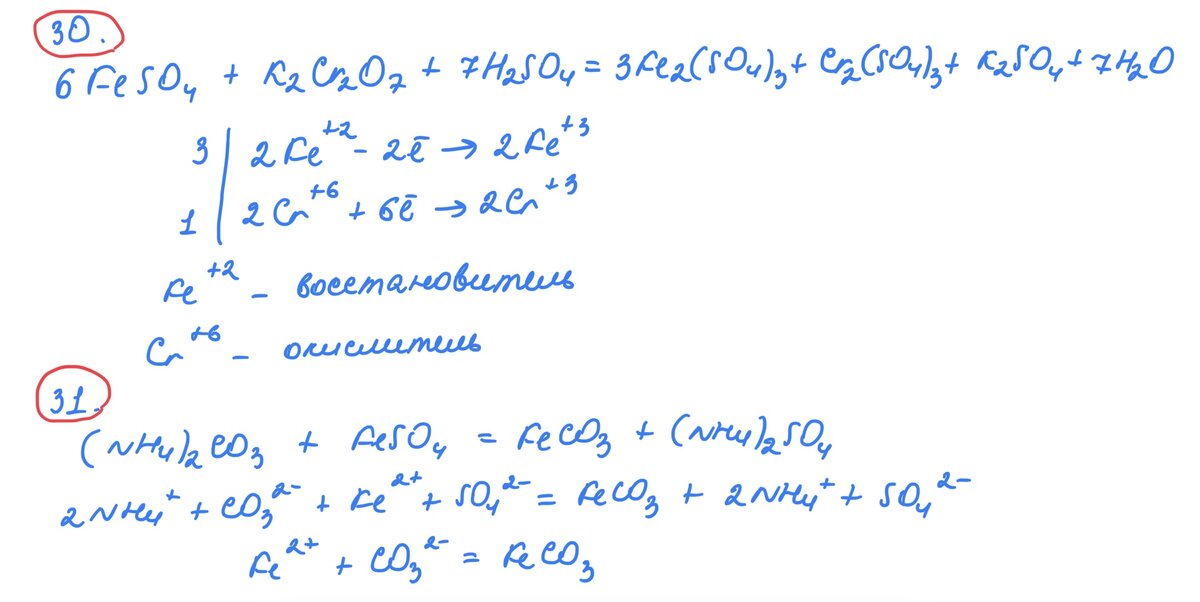 30.
6 FeSO₄ + K₂Cr₂O₇ + 7H₂SO₄ = 3Fe₂(SO₄)₃ + Cr₂(SO₄)₃ + K₂SO₄ + 7H₂O
3 | 2Fe⁺² - 2ē → 2Fe⁺³
1 | 2Cr⁺⁶ + 6ē → 2Cr⁺³
Fe⁺² - восстановитель
Cr⁺⁶ - окислитель
31.
(NH₄)₂CO₃ + FeSO₄ = FeCO₃ + (NH₄)₂SO₄
2NH₄⁺ + CO₃²⁻ + Fe²⁺ + SO₄²⁻ = FeCO₃ + 2NH₄⁺ + SO₄²⁻
Fe²⁺ + CO₃²⁻ = FeCO₃